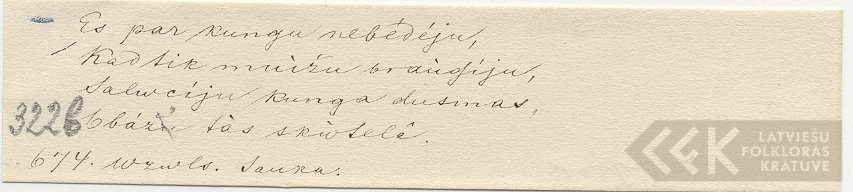 Es par kungu nebēdēju,
Kad tik muižu braudīju,
Salwciju kunga dusmas,
322b Cbāzu tās skiwtelê.
674. Wzwls. Sauka.
LATVIEŠU
FOLKLORAS
KRĀTUVE